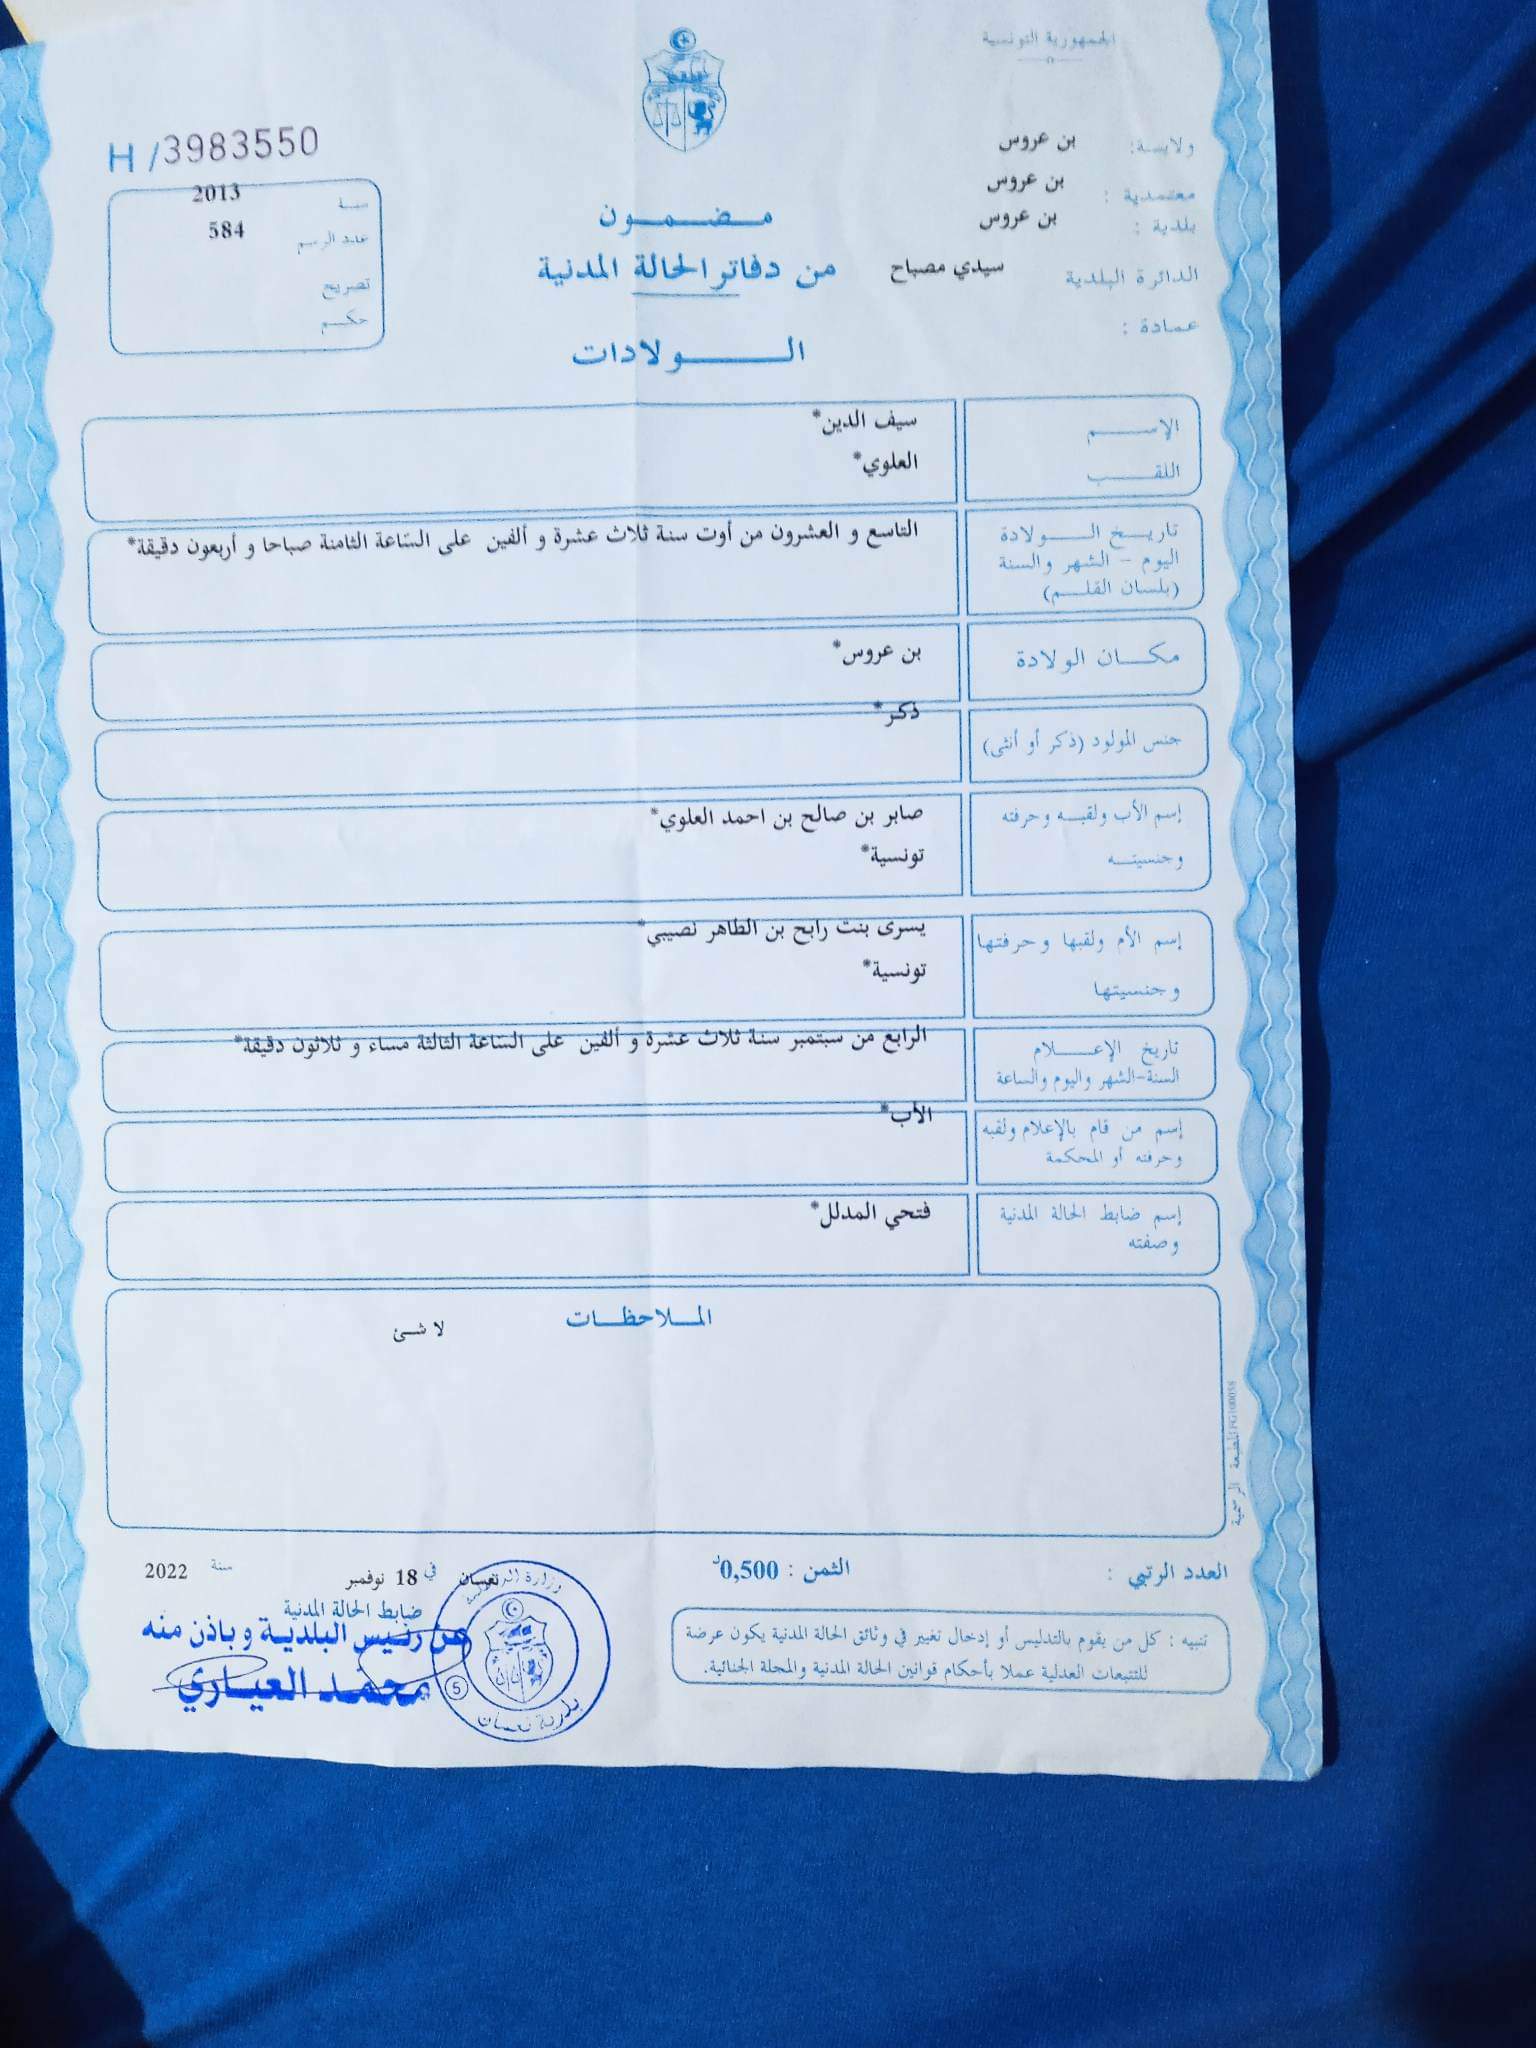 الجمهورية التونسية
ولايـة: بن عروس
معتمدية : بن عروس
بلدية : بن عروس
الدائرة البلدية سيدي مصباح
عمادة :
H / 3983550
سنة 2013
عدد الرسم 584
تصريح
حكم
مضمون
من دفاتر الحالة المدنية
الولادات
الإسم سيف الدين*
اللقب العلوي*
تاريخ الولادة
اليوم - الشهر والسنة
(بلسان القلم)
التاسع و العشرون من أوت سنة ثلاث عشرة و ألفين على السّاعة الثامنة صباحا و أربعون دقيقة*
مكان الولادة بن عروس*
جنس المولود (ذكر أو أنثى) ذكر*
إسم الأب ولقبه وحرفته صابر بن صالح بن احمد العلوي*
وجنسيته تونسية*
إسم الأم ولقبها وحرفتها يسرى بنت رابح بن الطاهر نصيبي*
وجنسيتها تونسية*
تاريخ الإعلام
السنة-الشهر واليوم والساعة
الرابع من سبتمبر سنة ثلاث عشرة و ألفين على السّاعة الثالثة مساء و ثلاثون دقيقة*
إسم من قام بالإعلام ولقبه
وحرفته أو المحكمة
الأب*
إسم ضابط الحالة المدنية
وصفته
فتحي المدلل*
الملاحظات
لا شئ
المطبعة الرسمية
العدد الرتبي :
الثمن : 0,500 د
تنبيه : كل من يقوم بالتدليس أو إدخال تغيير في وثائق الحالة المدنية يكون عرضة
للتتبعات العدلية عملا بأحكام قوانين الحالة المدنية والمجلة الجنائية.
نعسان في 18 نوفمبر سنة 2022
ضابط الحالة المدنية
عن رئيس البلدية وباذن منه
محمد العياري
5
بلدية نعسان